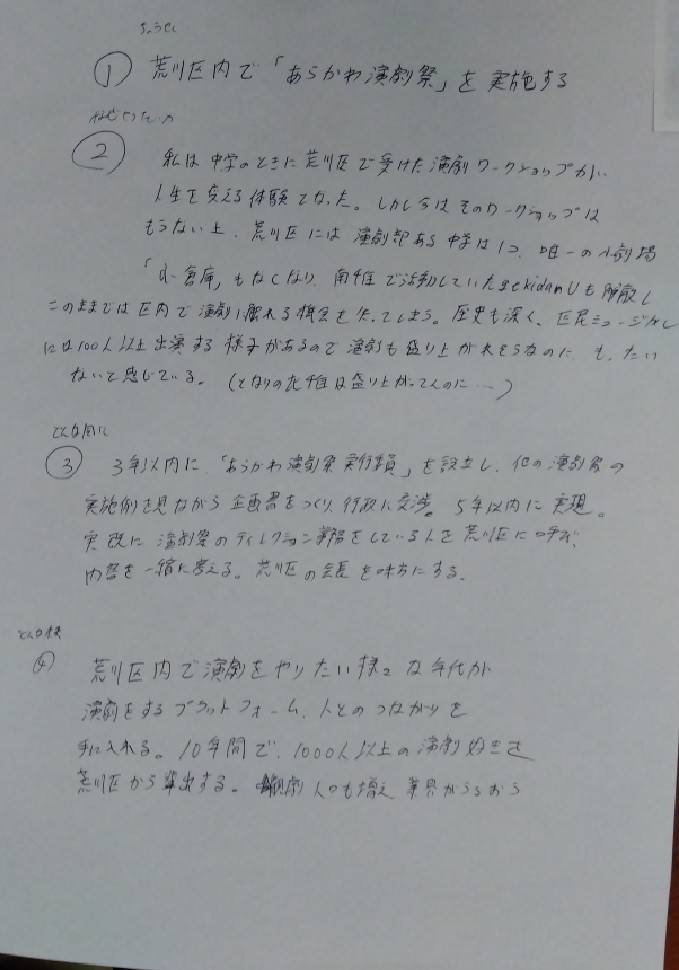 ちょうせん
① 荒川区内で「あらかわ演劇祭」を実施する
② 私は中学のときに荒川区で受けた演劇ワークショップが
人生を変える体験となった。しかし今はそのワークショップは
もうない上、荒川区には演劇部ある中学は1つ、唯一の小劇場
「小倉庫」もなくなり、南千住で活動していたgekidanUも解散し
このままでは区内で演劇に触れる機会を失ってしまう。歴史も深く、区民ミュージカル
には100人以上出演する様子があるので演劇も盛り上がれそうなのにもったい
ないと感じている。(となりの北千住は盛り上がってんのに……)
どんな風に
③ 3年以内に、「あらかわ演劇祭実行委員」を設立し、他の演劇祭の
実施例を見ながら企画書をつくり、行政に交渉。5年以内に実現。
実際に演劇祭のディレクション業務をしている人を荒川区に呼び、
内容を一緒に考える。荒川区の会長を味方にする。
④ 荒川区内で演劇をやりたい様々な年代が
演劇をするプラットフォーム、人とのつながりを
手に入れる。10年間で、1000人以上の演劇好きを
荒川区から輩出する。観劇人口も増え業界がうるおう